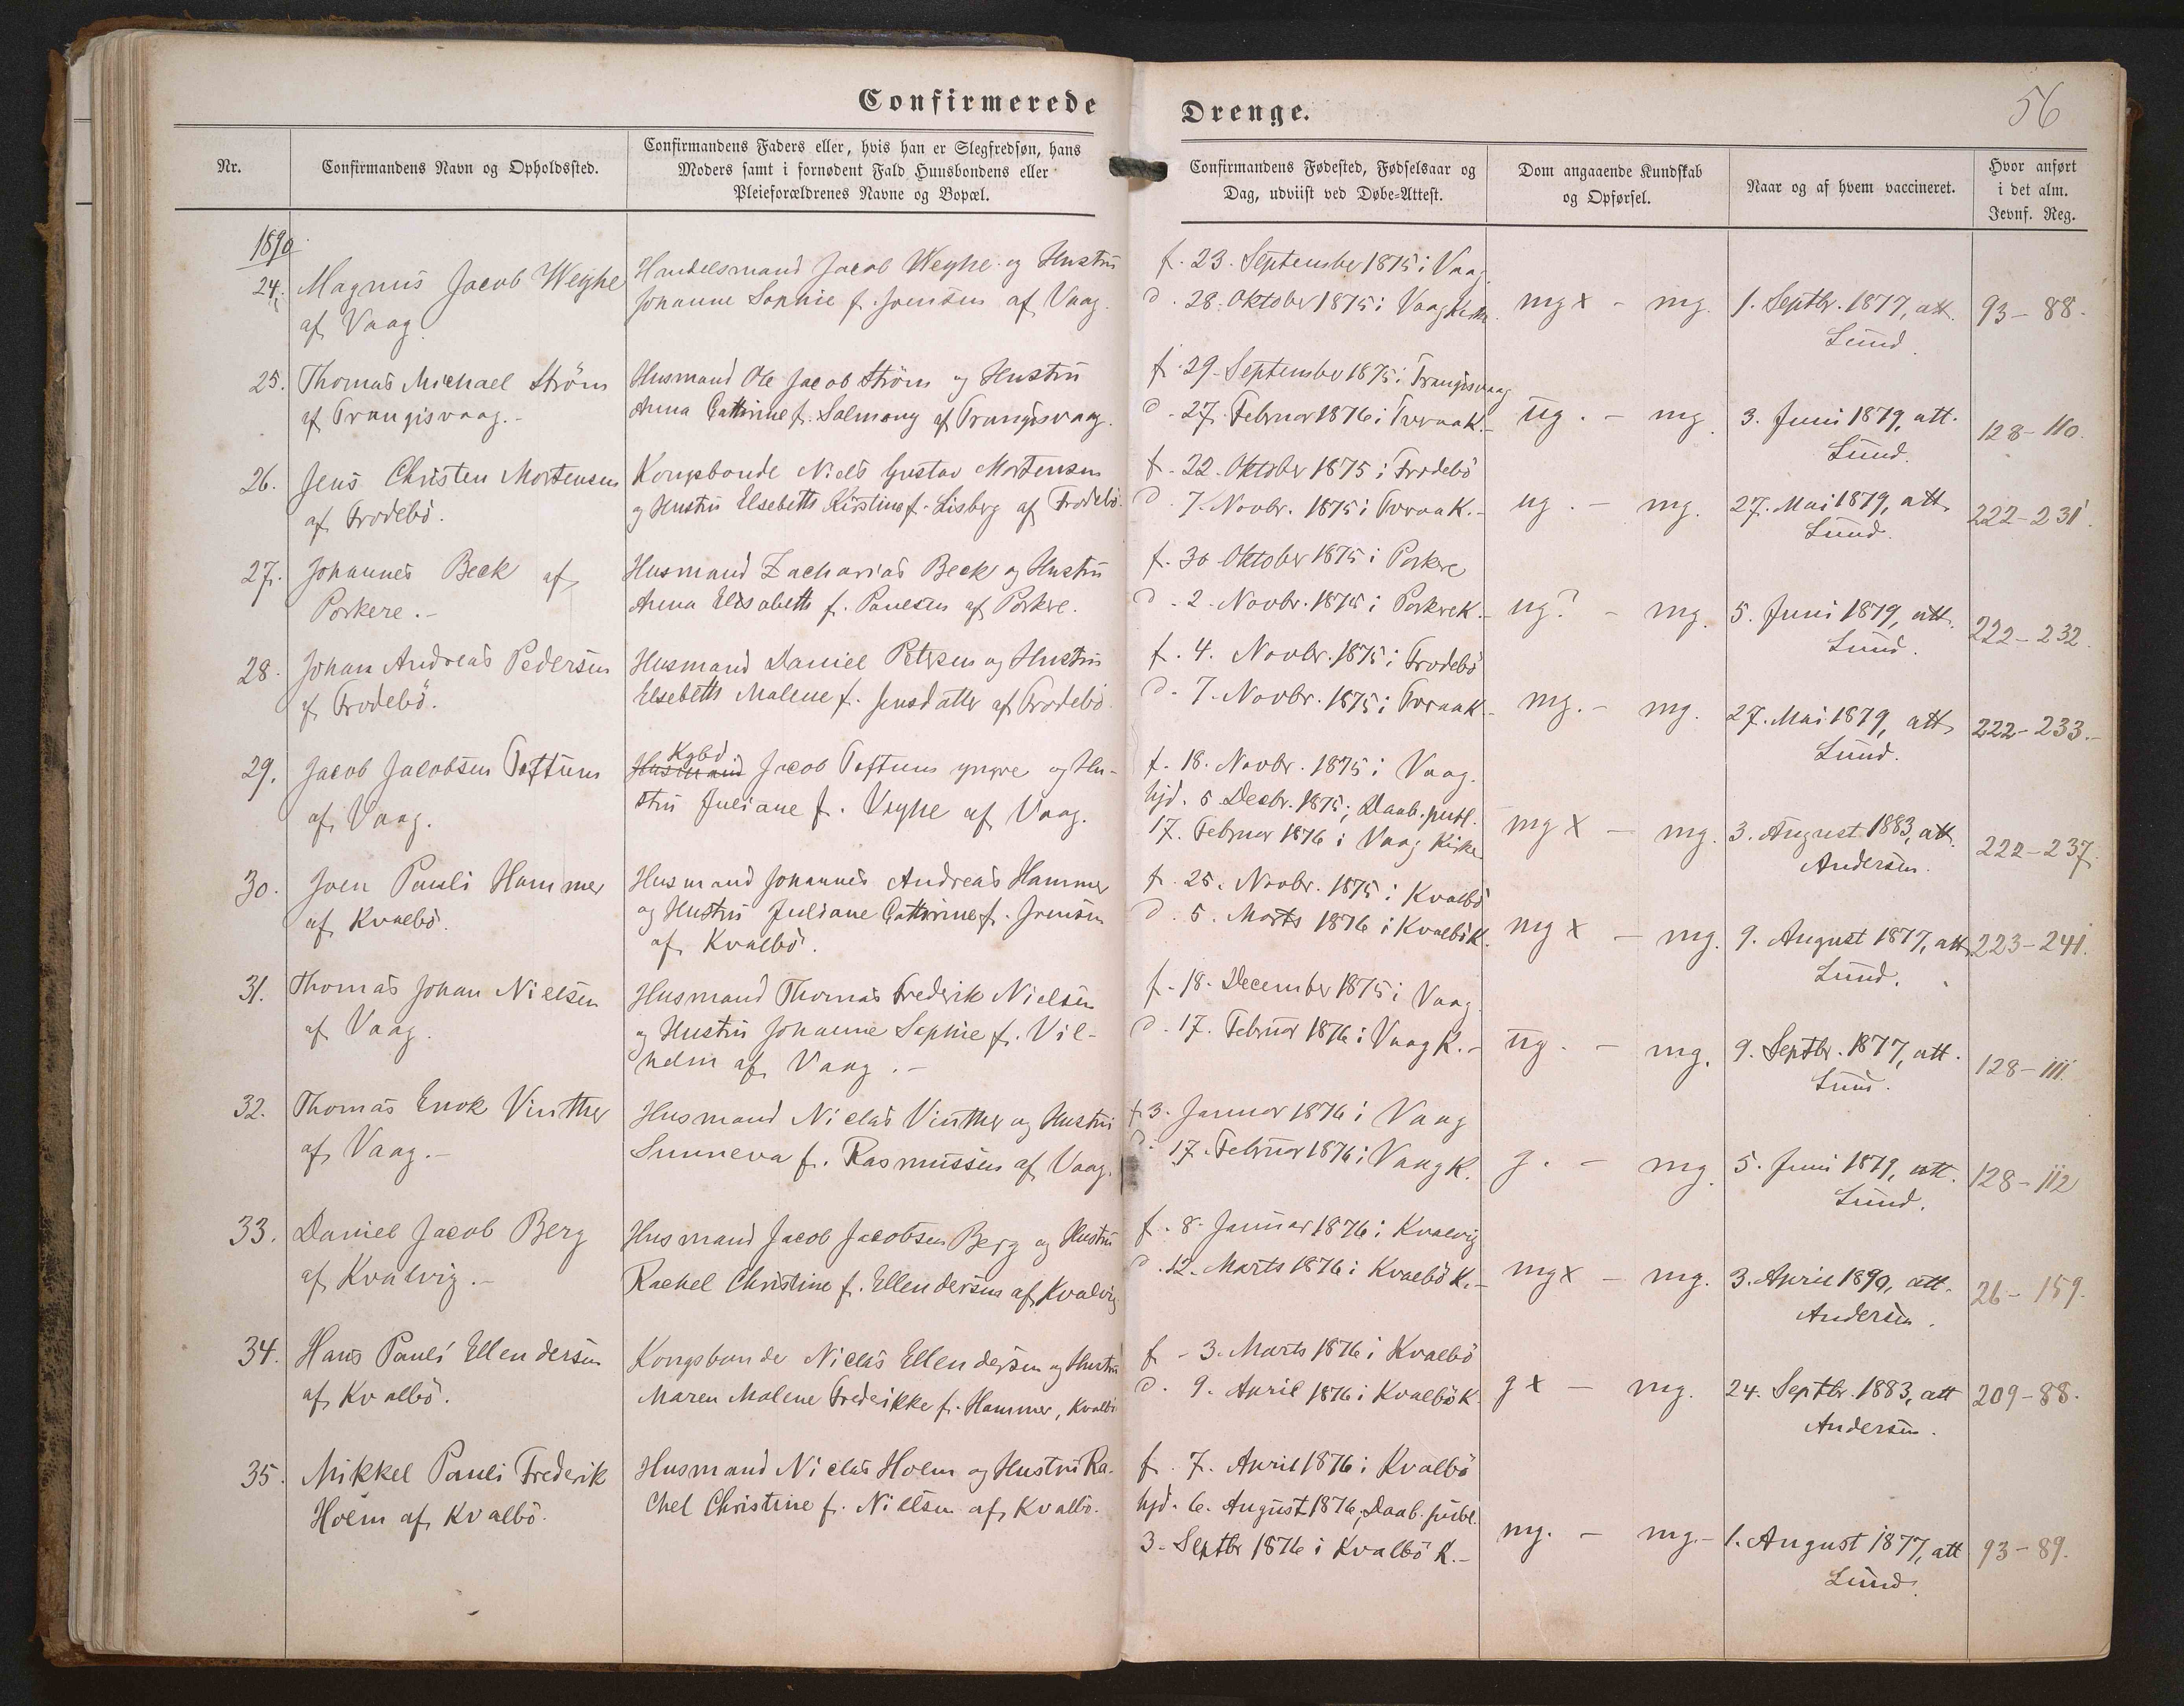 Confirmerede Drenge.
56
Nr.
Confirmandens Navn og Opholdssted.
Confirmandens Faders eller, hvis han er Slegfredsøn, hans
Moders samt i fornødent Fald Huusbondens eller
Pleieforældrenes Navne og Bopæl.
Confirmandens Fødested, Fødselsaar og
Dag, udviist ved Døbe-Attest.
Dom angaaende Kundskab
og Opførsel.
Naar og af hvem vaccineret.
Hvor anført
i det alm.
Jevnf. Reg.
1890
24. Magnus Jacob Weyhe
af Vaag.
Handelsmand Jacob Weyhe og Hustru
Johanne Sophie f. Joensen af Vaag.
f. 23. September 1875 i Vaag
d. 28. Oktober 1875 i Vaag Kirke.
mg x - mg.
1. Septbr. 1877, att.
Lund.
93-88.
25. Thomas Michael Strøm
af Trangisvaag.-
Husmand Ole Jacob Strøm og Hustru
Anna Cathrine f. Salmong af Trangisvaag.
f. 29. September 1875 i Trangisvaag
d. 27. Februar 1876 i Tveraa K.-
ug. - mg.
3. Juni 1879, att.
Lund.
128-110.
26. Jens Christen Mortensen
af Frodebö.
Kongsbonde Niels Gustav Mortensen
og Hustru Elsebeth Kirstine f. Lisberg af Frodebö.
f. 22. Oktober 1875 i Frodebö
d. 7. Novbr. 1875 i Tveraa K.-
ug. - mg.
27. Mai 1879, att.
Lund.
222-231.
27. Johannes Beck af
Porkere.-
Husmand Zacharias Beck og Hustru
Anna Elisabeth f. Poulsen af Porkere.
f. 30 Oktober 1875 i Porkere
d. 2. Novbr. 1875 i Porkere K.-
ug? - mg.
5. Juni 1879, att.
Lund.
222-232.
28. Johan Andreas Pedersen
af Frodebö.
Husmand Daniel Petersen og Hustru
Elsebeth Malene f. Jensdatter af Frodebö.
f. 4. Novbr. 1875 i Frodebö
d. 7. Novbr. 1875 i Tveraa K.-
mg. - mg.
27. Mai 1879, att
Lund.
222-233.-
29. Jacob Jacobsen Toftum
af Vaag.
Kgbd
Husmand Jacob Toftum yngre og Hu-
stru Juliane f. Weyhe af Vaag.
f. 18. Novbr. 1875 i Vaag.
hjd. 5 Decbr. 1875; Daab. publ.
17. Februar 1876 i Vaag Kirke
mg x - mg.
3. August 1883, att.
Andersen.
222-237.
30. Joen Pauli Hammer
af Kvalbö.
Husmand Johannes Andreas Hammer
og Hustru Juliane Cathrine f. Joensen
af Kvalbö.
f. 25. Novbr. 1875 i Kvalbö
d. 5. Marts 1876 i Kvalbö K.
mg x - mg.
9. August 1877, att.
Lund.
223-241.
31. Thomas Johan Nielsen
af Vaag.
Husmand Thomas Frederik Nielsen
og Hustru Johanne Sophie f. Vil-
helm af Vaag.-
f. 18. December 1875 i Vaag
d. 17. Februar 1876 i Vaag K.-
ug. - mg.
9. Septbr. 1877, att.
Lund.
128-111.
32. Thomas Enok Vinther
af Vaag.-
Husmand Niclas Vinther og Hustru
Sunneva f. Rasmussen af Vaag.
f. 3. Januar 1876 i Vaag
d. 17. Februar 1876 i Vaag K.
g. - mg.
5. Juni 1879, att.
Lund.
128-112
33. Daniel Jacob Berg
af Kvalvig.-
Husmand Jacob Jacobsen Berg og Hustru
Rachel Christine f. Ellendersen af Kvalvig
f. 8. Januar 1876 i Kvalvig
d. 12. Marts 1876 i Kvalbö K.-
mg x - mg.
3. April 1890, att.
Andersen.
26-159.
34. Hans Pauli Ellendersen
af Kvalbö.
Kongsbonde Niclas Ellendersen og Hustru
Maren Malene Frederikke f. Hammer, Kvalbö
f. 3. Marts 1876 i Kvalbö
d. 9. April 1876 i Kvalbö K.
g x - mg.
24. Septbr. 1883, att
Andersen.
209-88.
35. Mikkel Pauli Frederik
Holm af Kvalbö.
Husmand Niclas Holm og Hustru Ra-
chel Christine f. Nielsen af Kvalbö.
f. 7. April 1876 i Kvalbö
hjd. 6. August 1876, Daab. publ.
3. Septbr 1876 i Kvalbö K.-
mg. - mg.-
1. August 1877, att
Lund.
93-89.